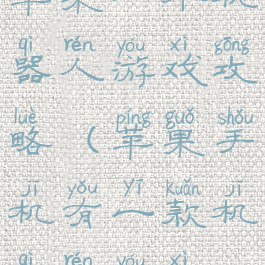 qì rén yóu xì gōng
器人游戏攻
lüè píng guǒ shǒu
略（苹果手
jī yǒu yī kuǎn jī
机有一款机
qì rén yóu xì